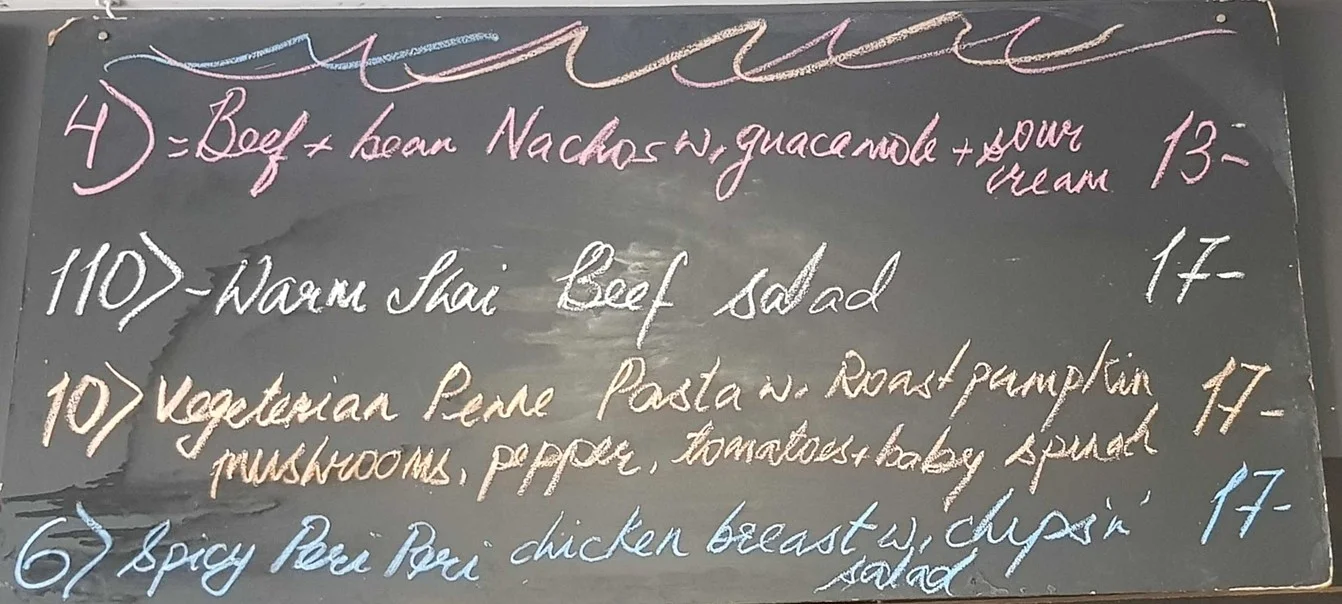 4) = Beef + bean Nachos w. guacamole + sour 13-
cream
110) - Warm Thai Beef salad 17-
10) Vegeterian Penne Pasta w. Roast pumpkin 17-
mushrooms, pepper, tomatoes + baby spinah
6) Spicy Peri Peri chicken breast w. chips 'n' 17-
salad